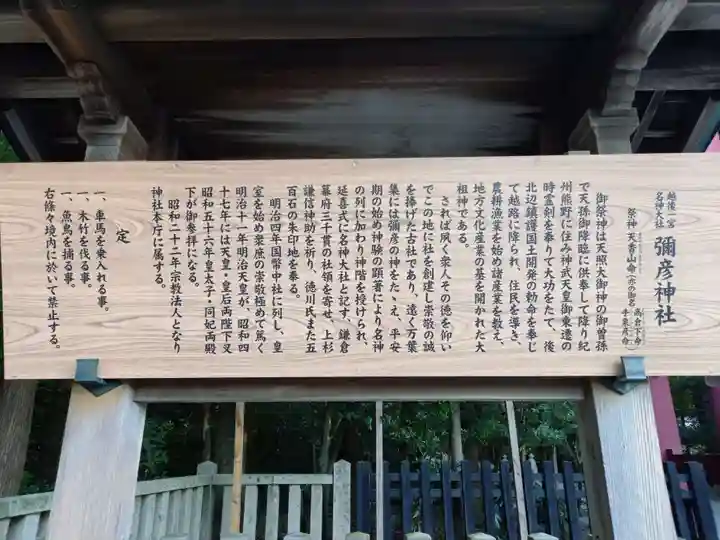 越後一宮
名神大社
彌彦神社
祭神 天香山命
(亦の御名
高倉下命
手栗彦命)
御祭神は天照大御神の御曾孫
で天孫御降臨に供奉して降り紀
州熊野に住み神武天皇御東遷の
時霊剣を奉りて大功をたて、後
北辺鎮護国土開発の勅命を奉じ
て越路に降られ、住民を導き、
農耕漁業を始め諸産業を教え、
地方文化産業の基を開かれた大
祖神である。
されば夙く衆人その徳を仰い
でこの地に社を創建し崇敬の誠
を捧げた古社であり、遠く万葉
集には彌彦の神をたゝえ、平安
期の始め神験の顕著により名神
の列に加わり神階を授けられ、
延喜式に名神大社と記す、鎌倉
幕府三千貫の社領を寄せ、上杉
謙信神助を祈り、徳川氏また五
百石の朱印地を奉る。
明治四年国幣中社に列し、皇
室を始め衆庶の崇敬極めて篤く
明治十一年明治天皇が、昭和四
十七年には天皇・皇后両陛下又
昭和五十六年皇太子・同妃両殿
下が御参拝になる。
昭和二十二年宗教法人となり
神社本庁に属する。
定
一、車馬を乗入れる事。
一、木竹を伐る事。
一、魚鳥を捕る事。
右條々境内に於いて禁止する。